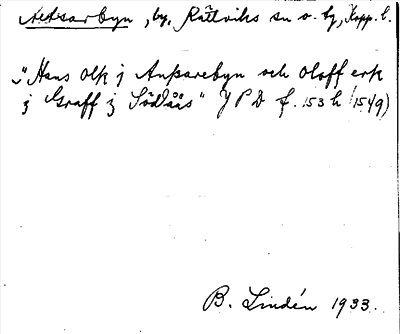 Altsarbyn, by, Rättviks sn o. tg, Kopp. l.
„"Hans Olk j Anzsarebyn och Oloff erk
j Graff j Södåås" J P D f. 153 h (1549)
B. Lindén 1933.